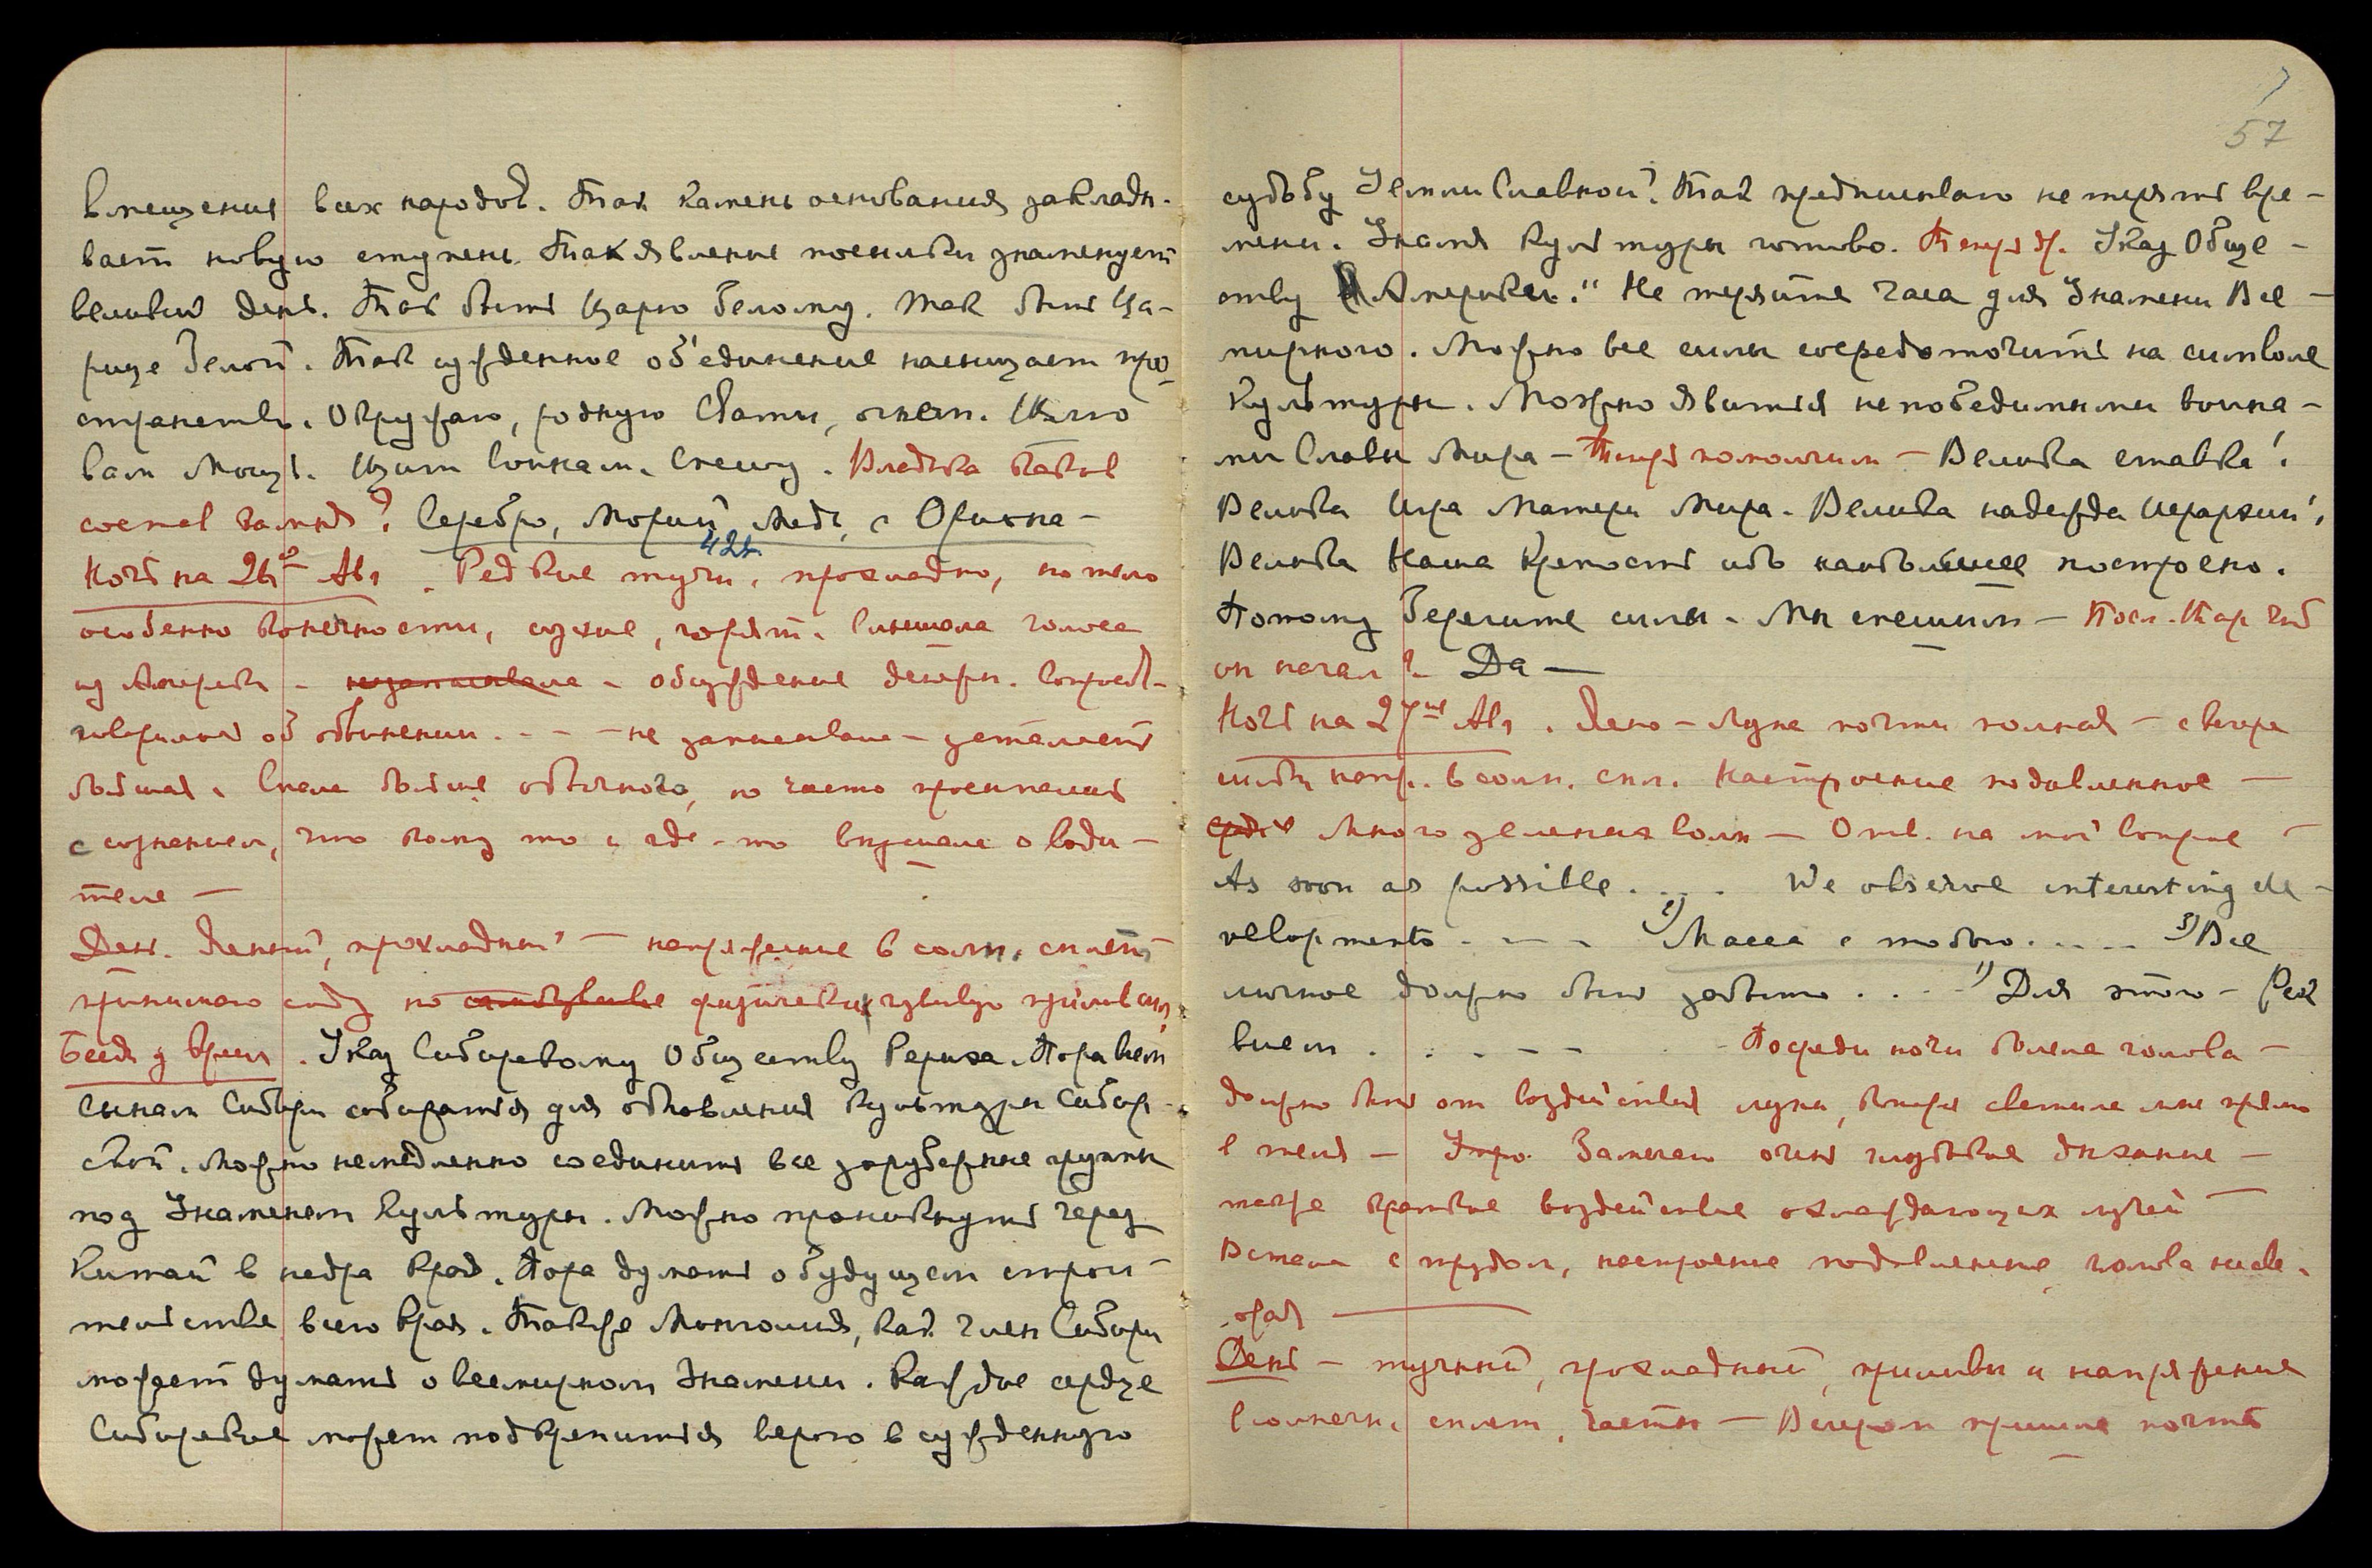 вмещения всех народов. Так камень основания заклады-
вает новую ступень. Так явление посылки знаменует
великий день. Так быть Царю белому. Так быть Ца-
рице Белой. Так сужденное об'единение насыщает про-
странство. Окружаю, родную Свати, огнем. Шлю
вам Мощь. Щит Воинам. Спешу. Владыка каков
состав камня? Серебро, Морий, Медь, с Ориона –
Ночь на 26ое Авг. 42г. Редкие тучи, прохладно, но тело
особенно конечности, сухие, горят. Слышала голоса
из Америки – не записывала – обсуждение
говорилось об обвинении . . . – не записывала – усталость
большая. Спала больше обычного, но часто просыпалась
с сознанием, что кому то и где-то внушала о води-
теле –
День. Ясный, прохладный – напряжение в солн. сплет.
принимаю соду но физически чувствую
Беседа у Врем. Указ Сибирскому Обществу Рериха. Пора всем
сынам Сибири собираться для обновления культуры Сибир-
ской. Можно немедленно соединить все зарубежные группы
под Знаменем Культуры. Можно проникнуть через
Китай в недра края. Пора думать о будущем строи-
тельстве всего края. Также Монголия, как член Сибири
может думать о всемирном Знамени. Каждое сердце
Сибирское может подкрепиться верою в сужденную
57
судьбу Земли Славной! Так предписываю не терять вре-
мени. Знамя Культуры готово. Теперь др. Указ Обще-
ству Америки." Не теряйте часа для Знамени Все-
мирного. Можно все силы сосредоточить на символе
Культуры. Можно явиться непобедимыми воина-
ми Славы Мира – Теперь помолчим – Велика ставка!
Велика Игра Матери Мира. Велика надежда Иерархии!
Велика Наша Крепость ибо наибольшее построено.
Потому Берегите силы. Мы спешим – Посл.
он начал? Да –
Ночь на 27ое Авг. Ясно – луна почти полная – скоро
напр. в солн. спл. Настроение подавленное –
Много зеленых волн – Отв. на мой вопрос –
As soon as possible . . . . We observe interesting de-
velopments . – – – 2) Масса с тобою . . . . . 3) Все
личное должно быть забыто . . . – 1) Для этого –
. . . – – – Посреди ночи болела голова –
должно быть от воздействия луны, которая светила мне прямо
в темя – Утро. Замечаю очень глубокие дыхание –
также краткие воздействие охлаждающих лучей –
Встала с трудом, настроение подавленное, голова несве-
жая –
День – тучный, прохладный, приливы и напряжения
солнечн. сплет. часты – Вечером пришла почта